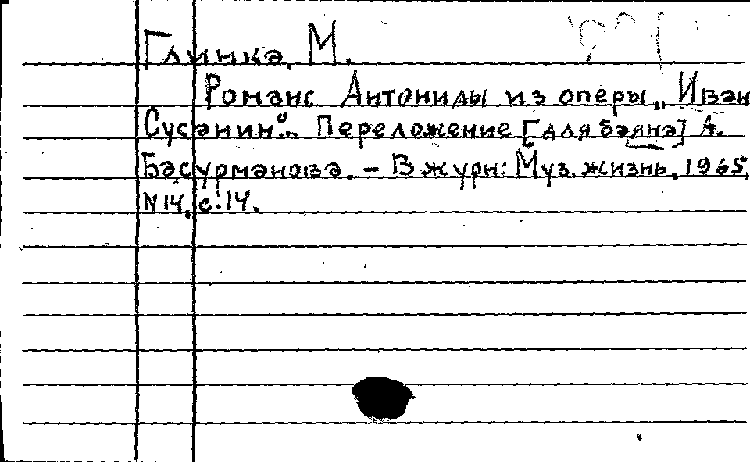 Глинка, М.
Романс Антониды из оперы „Иван
Сусанин". Переложение [для баяна] А.
Басурманова. – В журн: Муз. жизнь, 1965,
N14, с. 14.